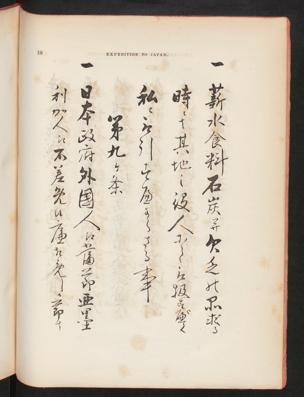 10
EXPEDITION TO JAPAN.
一 薪水食料石炭并欠乏の品求る
時ニ其地之役人にて取扱すへく
私に取引すへからさる事
第九ケ条
一 日本政府外国人江當節亜墨
利加人江不差免候廉相免し候節ハ